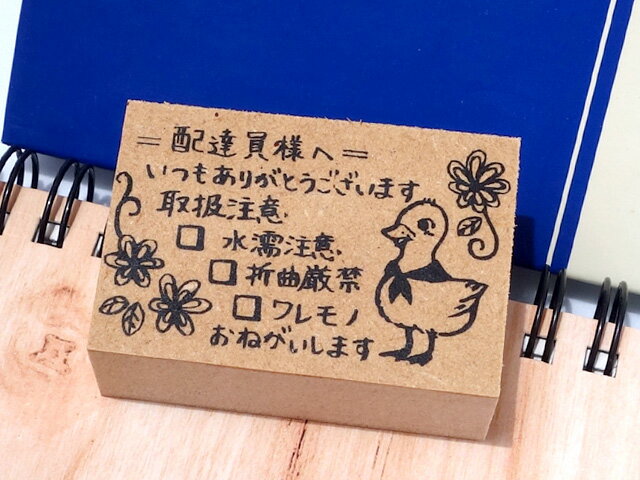 ＝配達員様へ＝
いつもありがとうございます
取扱注意
□ 水濡注意
□ 折曲厳禁
□ ワレモノ
おねがいします